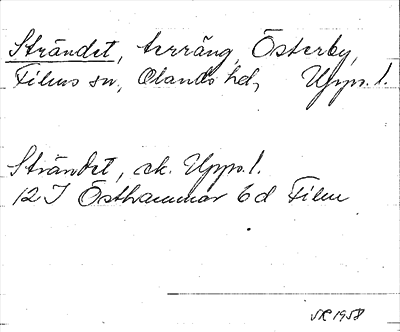 Strändet, terräng, Österby,
Films sn, Olands hd, Upps. l.
Strändet, ek. Upps. l.
12 I Östhammar 6d Film
SR 1958